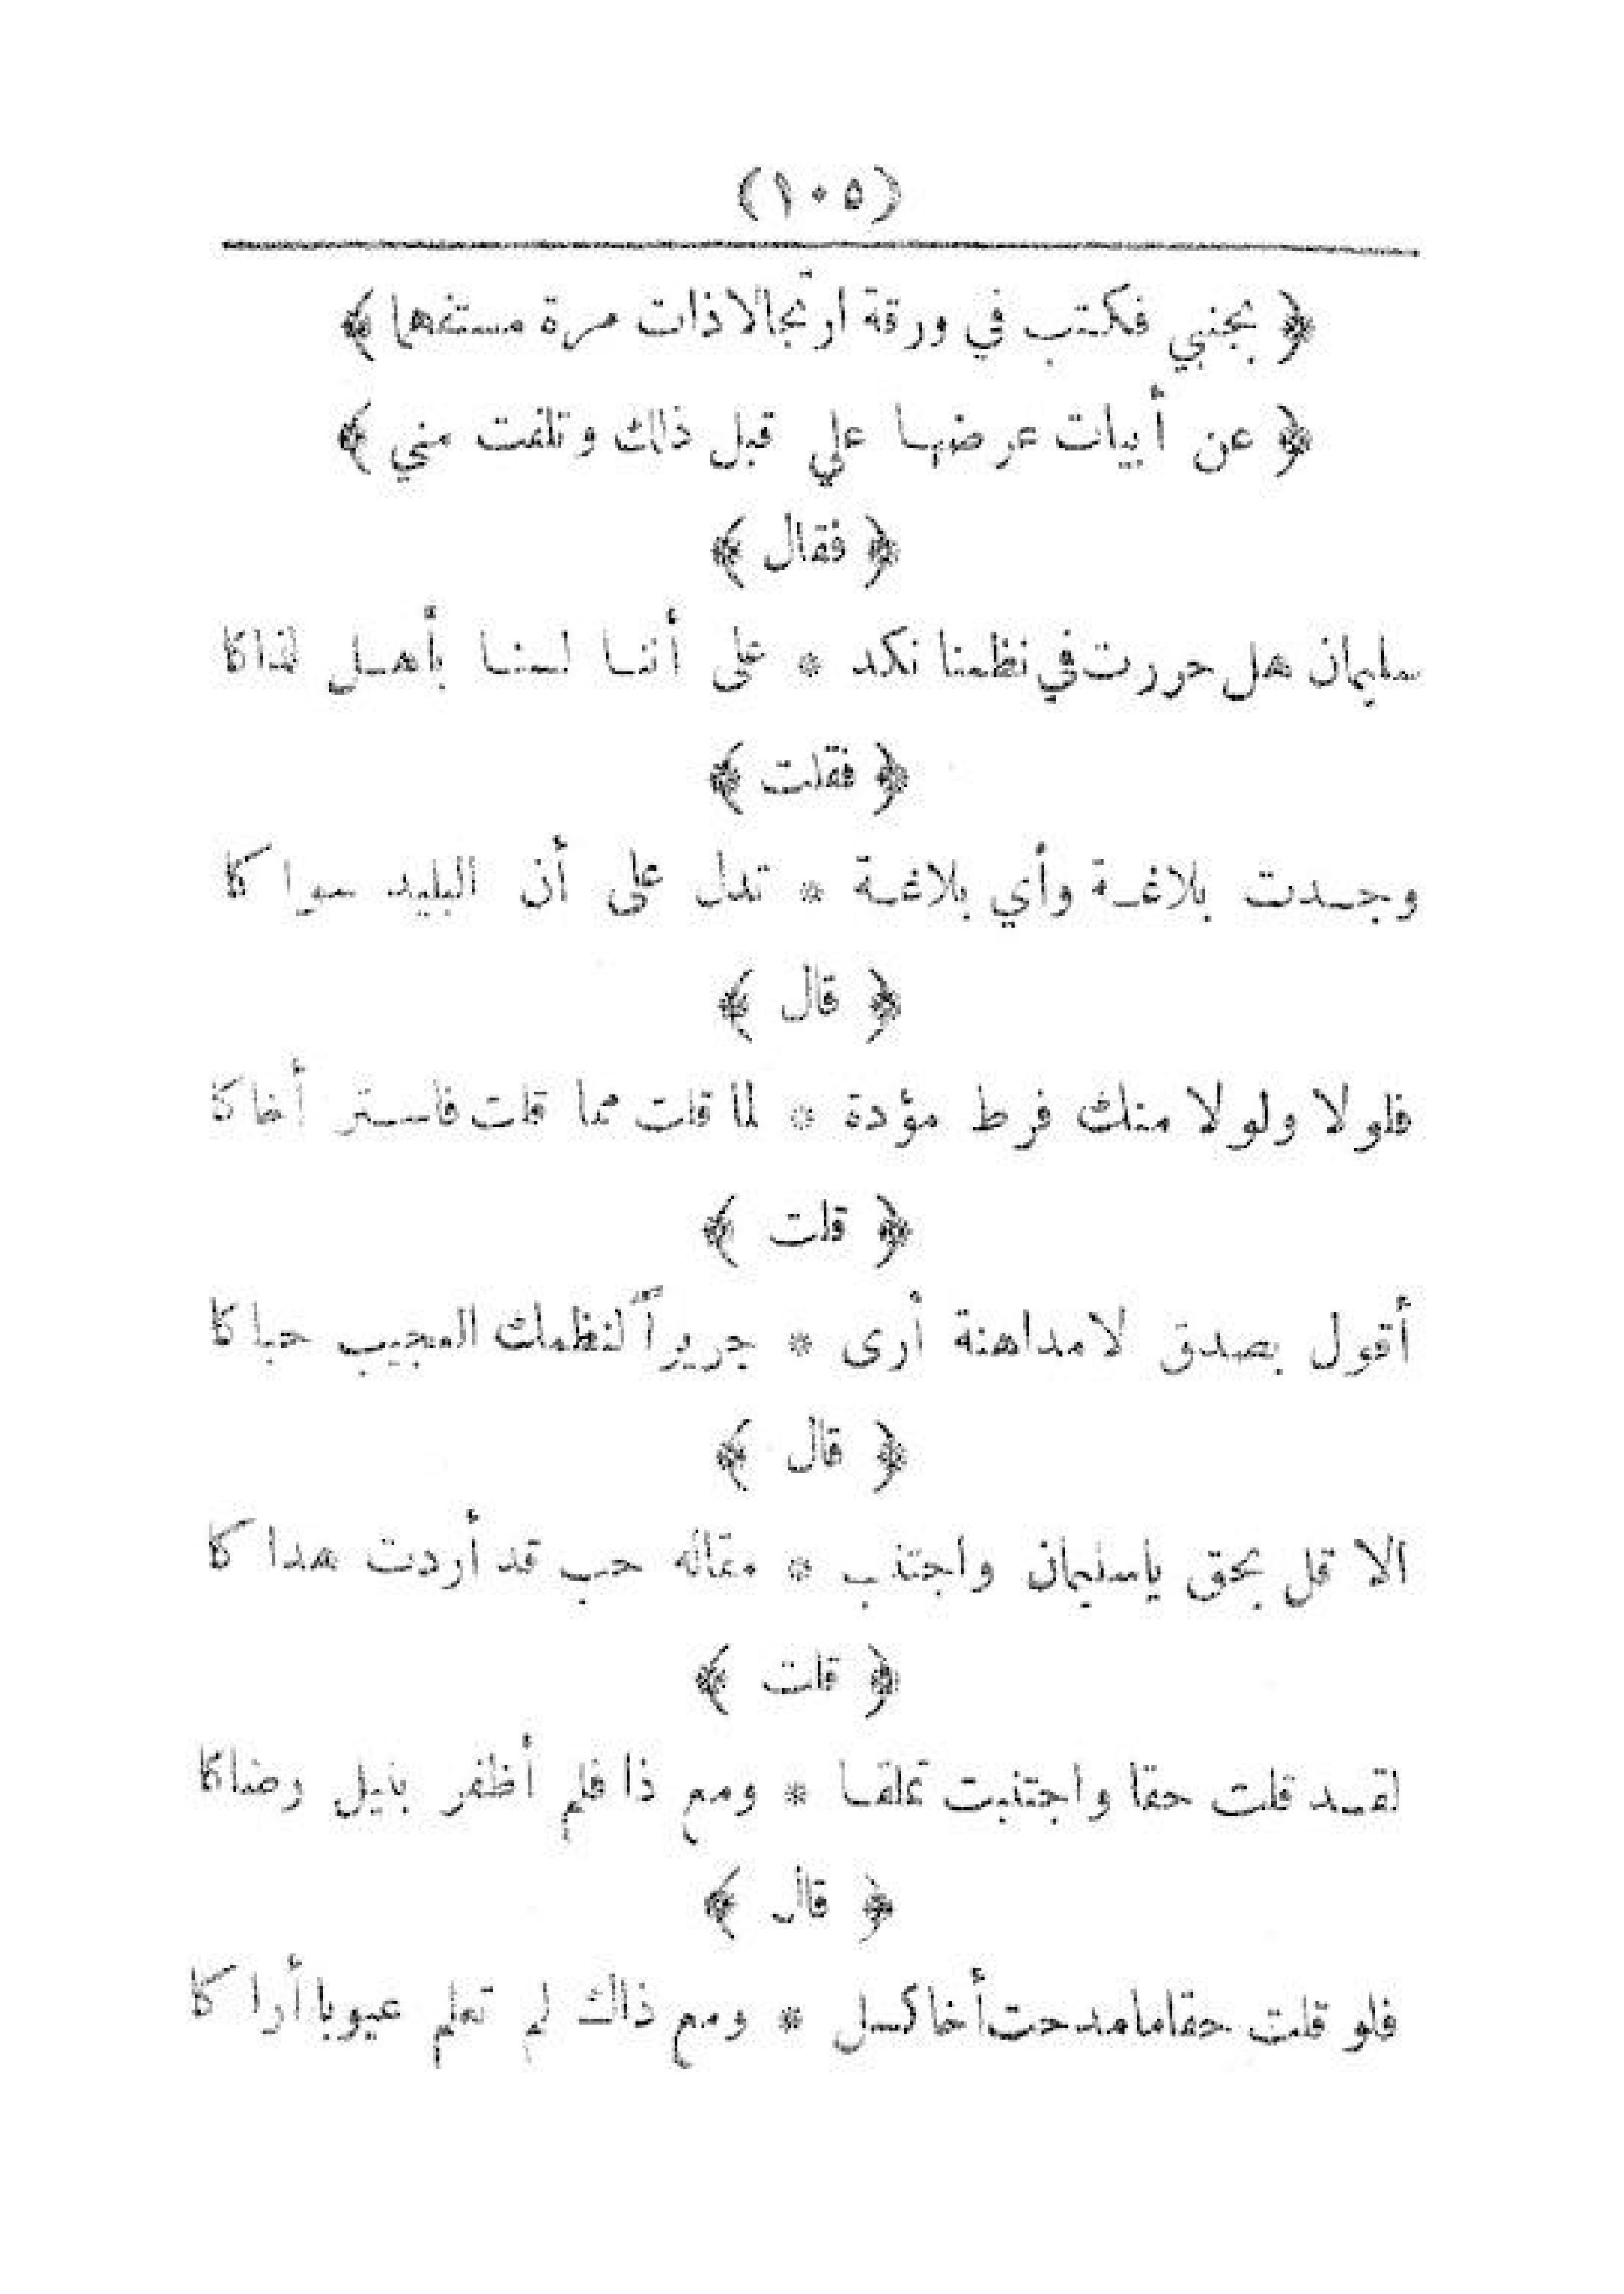 (١٠٥)
﴿ بجنبي فكتب في ورقة ارتجالا ذات مرة مستفهما ﴾
﴿ عن أبيات عرضها علي قبل ذلك وتلفت مني ﴾
﴿ فقال ﴾
سليمان هل حررت في نظمنا نكد * على أننا لسنا بأهل لذاكا
﴿ فقلت ﴾
وجدت بلاغة وأي بلاغة * تدل على أن البليد سواكا
﴿ قال ﴾
فلولا ولولا منك فرط مؤدة * لما قلت مما قلت فاستر أخاكا
﴿ قلت ﴾
أقول بصدق لا مداهنة أرى * جريراً لنظمك العجيب حباكا
﴿ قال ﴾
ألا قل بحق ياسليمان واجتنب * مقاله حب قد أردت هداكا
﴿ قلت ﴾
لقد قلت حقا واجتنبت تملقا * ومع ذا فلم أظفر بنيل رضاكا
﴿ قال ﴾
فلو قلت حقا ما مدحت أخا كسل * ومع ذاك لم تعلم عيوبا أراكا